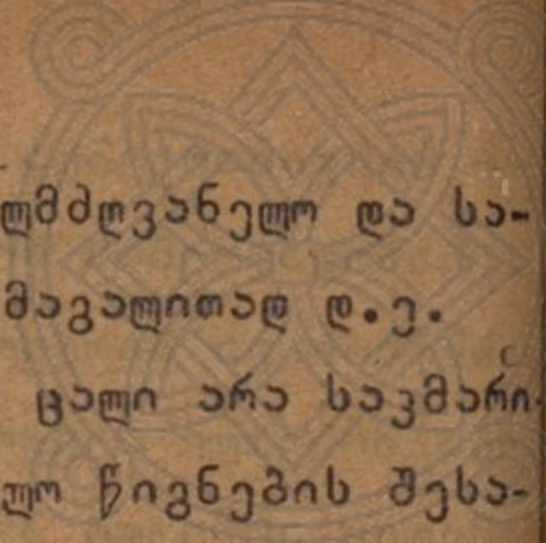 ლმძღვანელო და სა-
მაგალითად დ.ე.
ცალი არა საკმარი-
ლო წიგნების შესა-